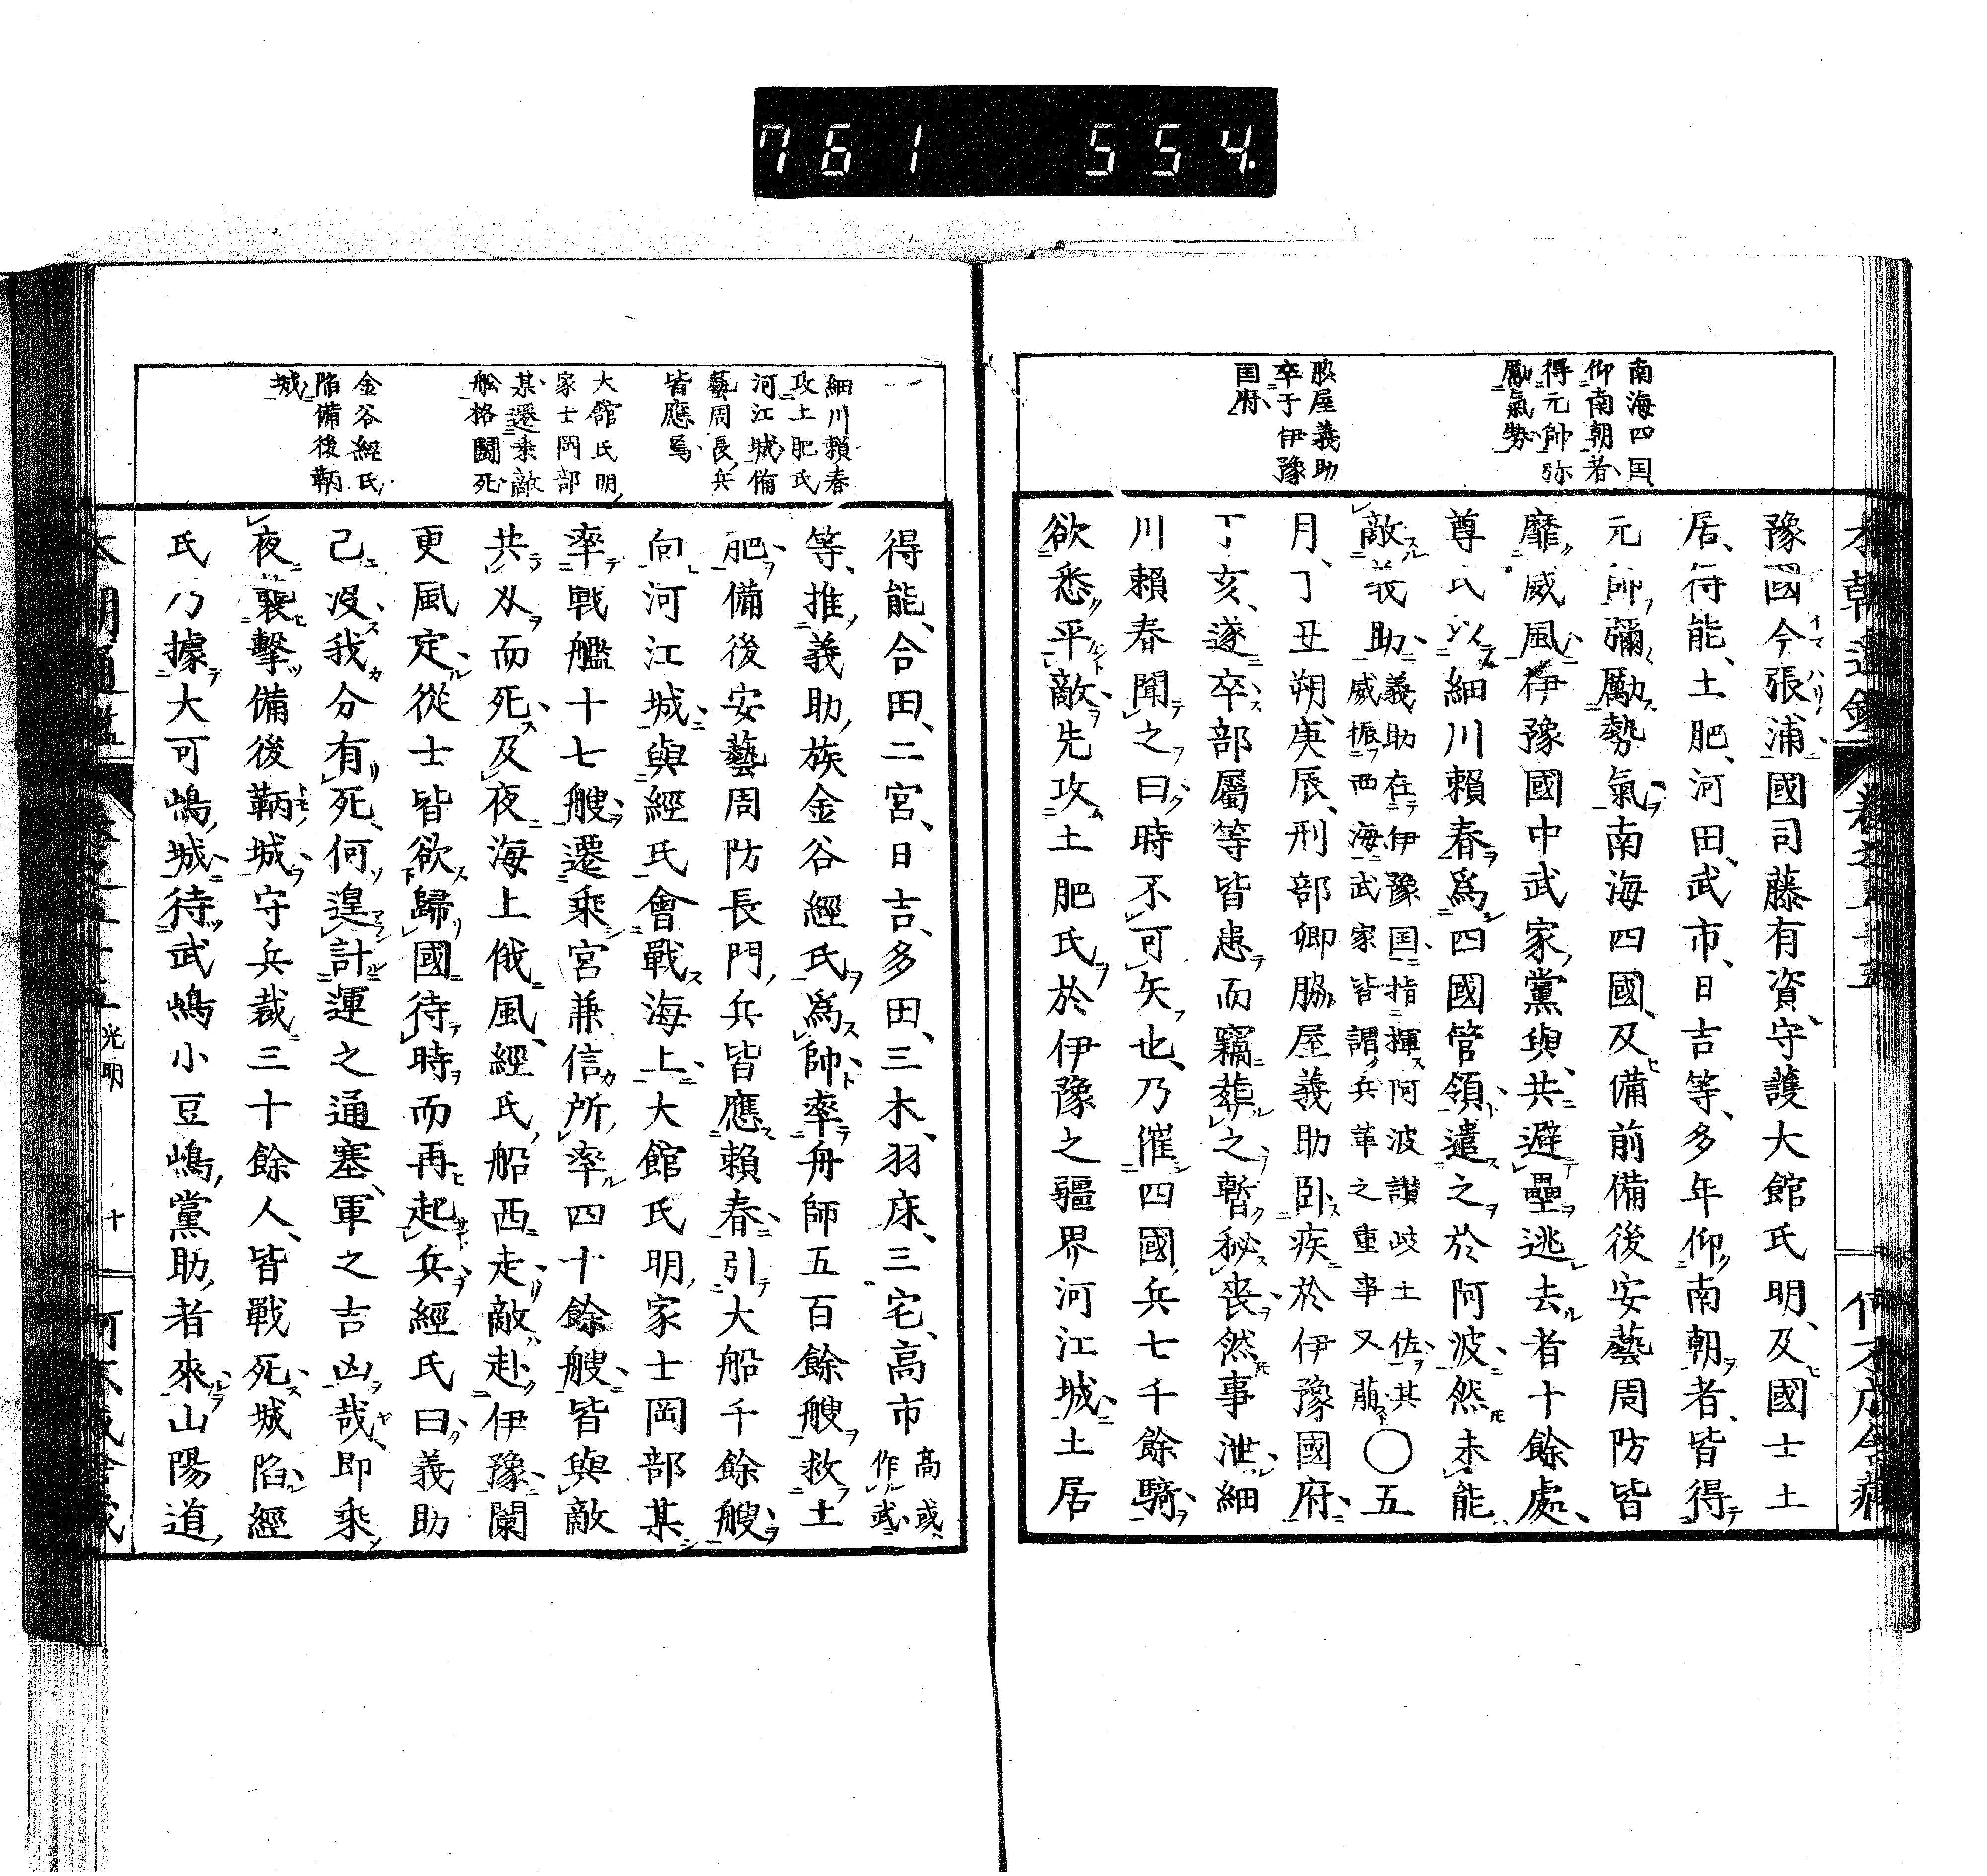 761 554.
南海四国
仰南朝者
得元帥弥
勵氣勢
脇屋義助
卒于伊豫
国府
豫國今張浦國司藤有資守護大館氏明及國士土
居得能土肥河田武市日吉等多年仰南朝者皆得
元帥彌勵勢氣南海四國及備前備後安藝周防皆
靡威風伊豫國中武家黨與共避壘逃去者十餘處
尊氏以細川賴春爲四國管領遣之於阿波然未能
敵義助義助在伊豫国指揮阿波讃岐土佐其
威振西海武家皆謂兵革之重事又萠○五
月丁丑朔庚辰刑部卿脇屋義助卧疾於伊豫國府
丁亥遂卒部屬等皆患而竊葬之暫秘喪然事泄細
川賴春聞之曰時不可矢也乃催四國兵七千餘騎
欲悉平敵先攻土肥氏於伊豫之疆界河江城土居
細川賴春
攻土肥氏
河江城備
藝周長兵
皆應焉
大館氏明
家士岡部
某遷乗敵
舩格闘死
金谷經氏
陷備後鞆
城
得能合田二宮日吉多田三木羽床三宅高市高或
作武
等推義助族金谷經氏爲帥率舟師五百餘艘救土
肥備後安藝周防長門兵皆應賴春引大船千餘艘
向河江城與經氏會戰海上大館氏明家士岡部某
率戰艦十七艘遷乗宮兼信所率四十餘艘皆與敵
共刄而死及夜海上俄風經氏船西走敵赴伊豫闌
更風定從士皆欲歸國待時而再起兵經氏曰義助
已没我分有死何遑計運之通塞軍之吉凶哉即乘
夜襲擊備後鞆城守兵裁三十餘人皆戰死城陷經
氏乃據大可嶋城待武嶋小豆嶋黨助者來山陽道
光明
十